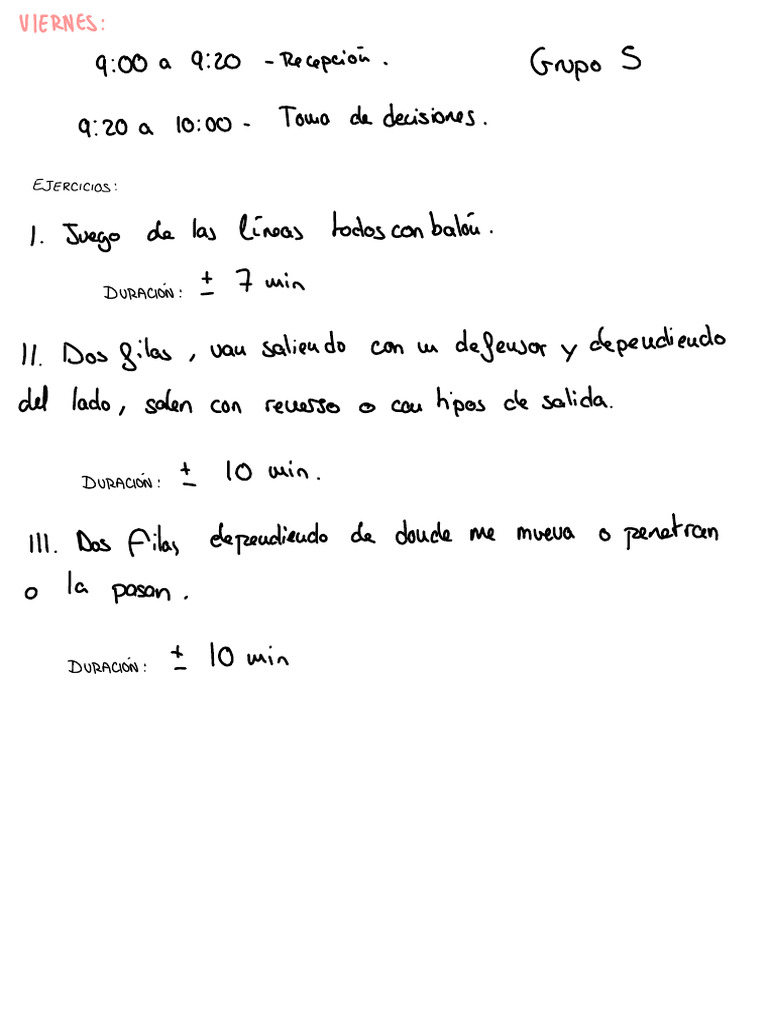 VIERNES:
9:00 a 9:20 - Recepción. Grupo S
9:20 a 10:00 - Toma de decisiones.
EJERCICIOS:
I. Juego de las líneas todos con balón.
DURACIÓN: ± 7 min
II. Dos filas, van saliendo con un defensor y dependiendo
del lado, salen con reverso o con tipos de salida.
DURACIÓN: ± 10 min.
III. Dos filas dependiendo de donde me mueva o penetran
o la pasan.
DURACIÓN: ± 10 min